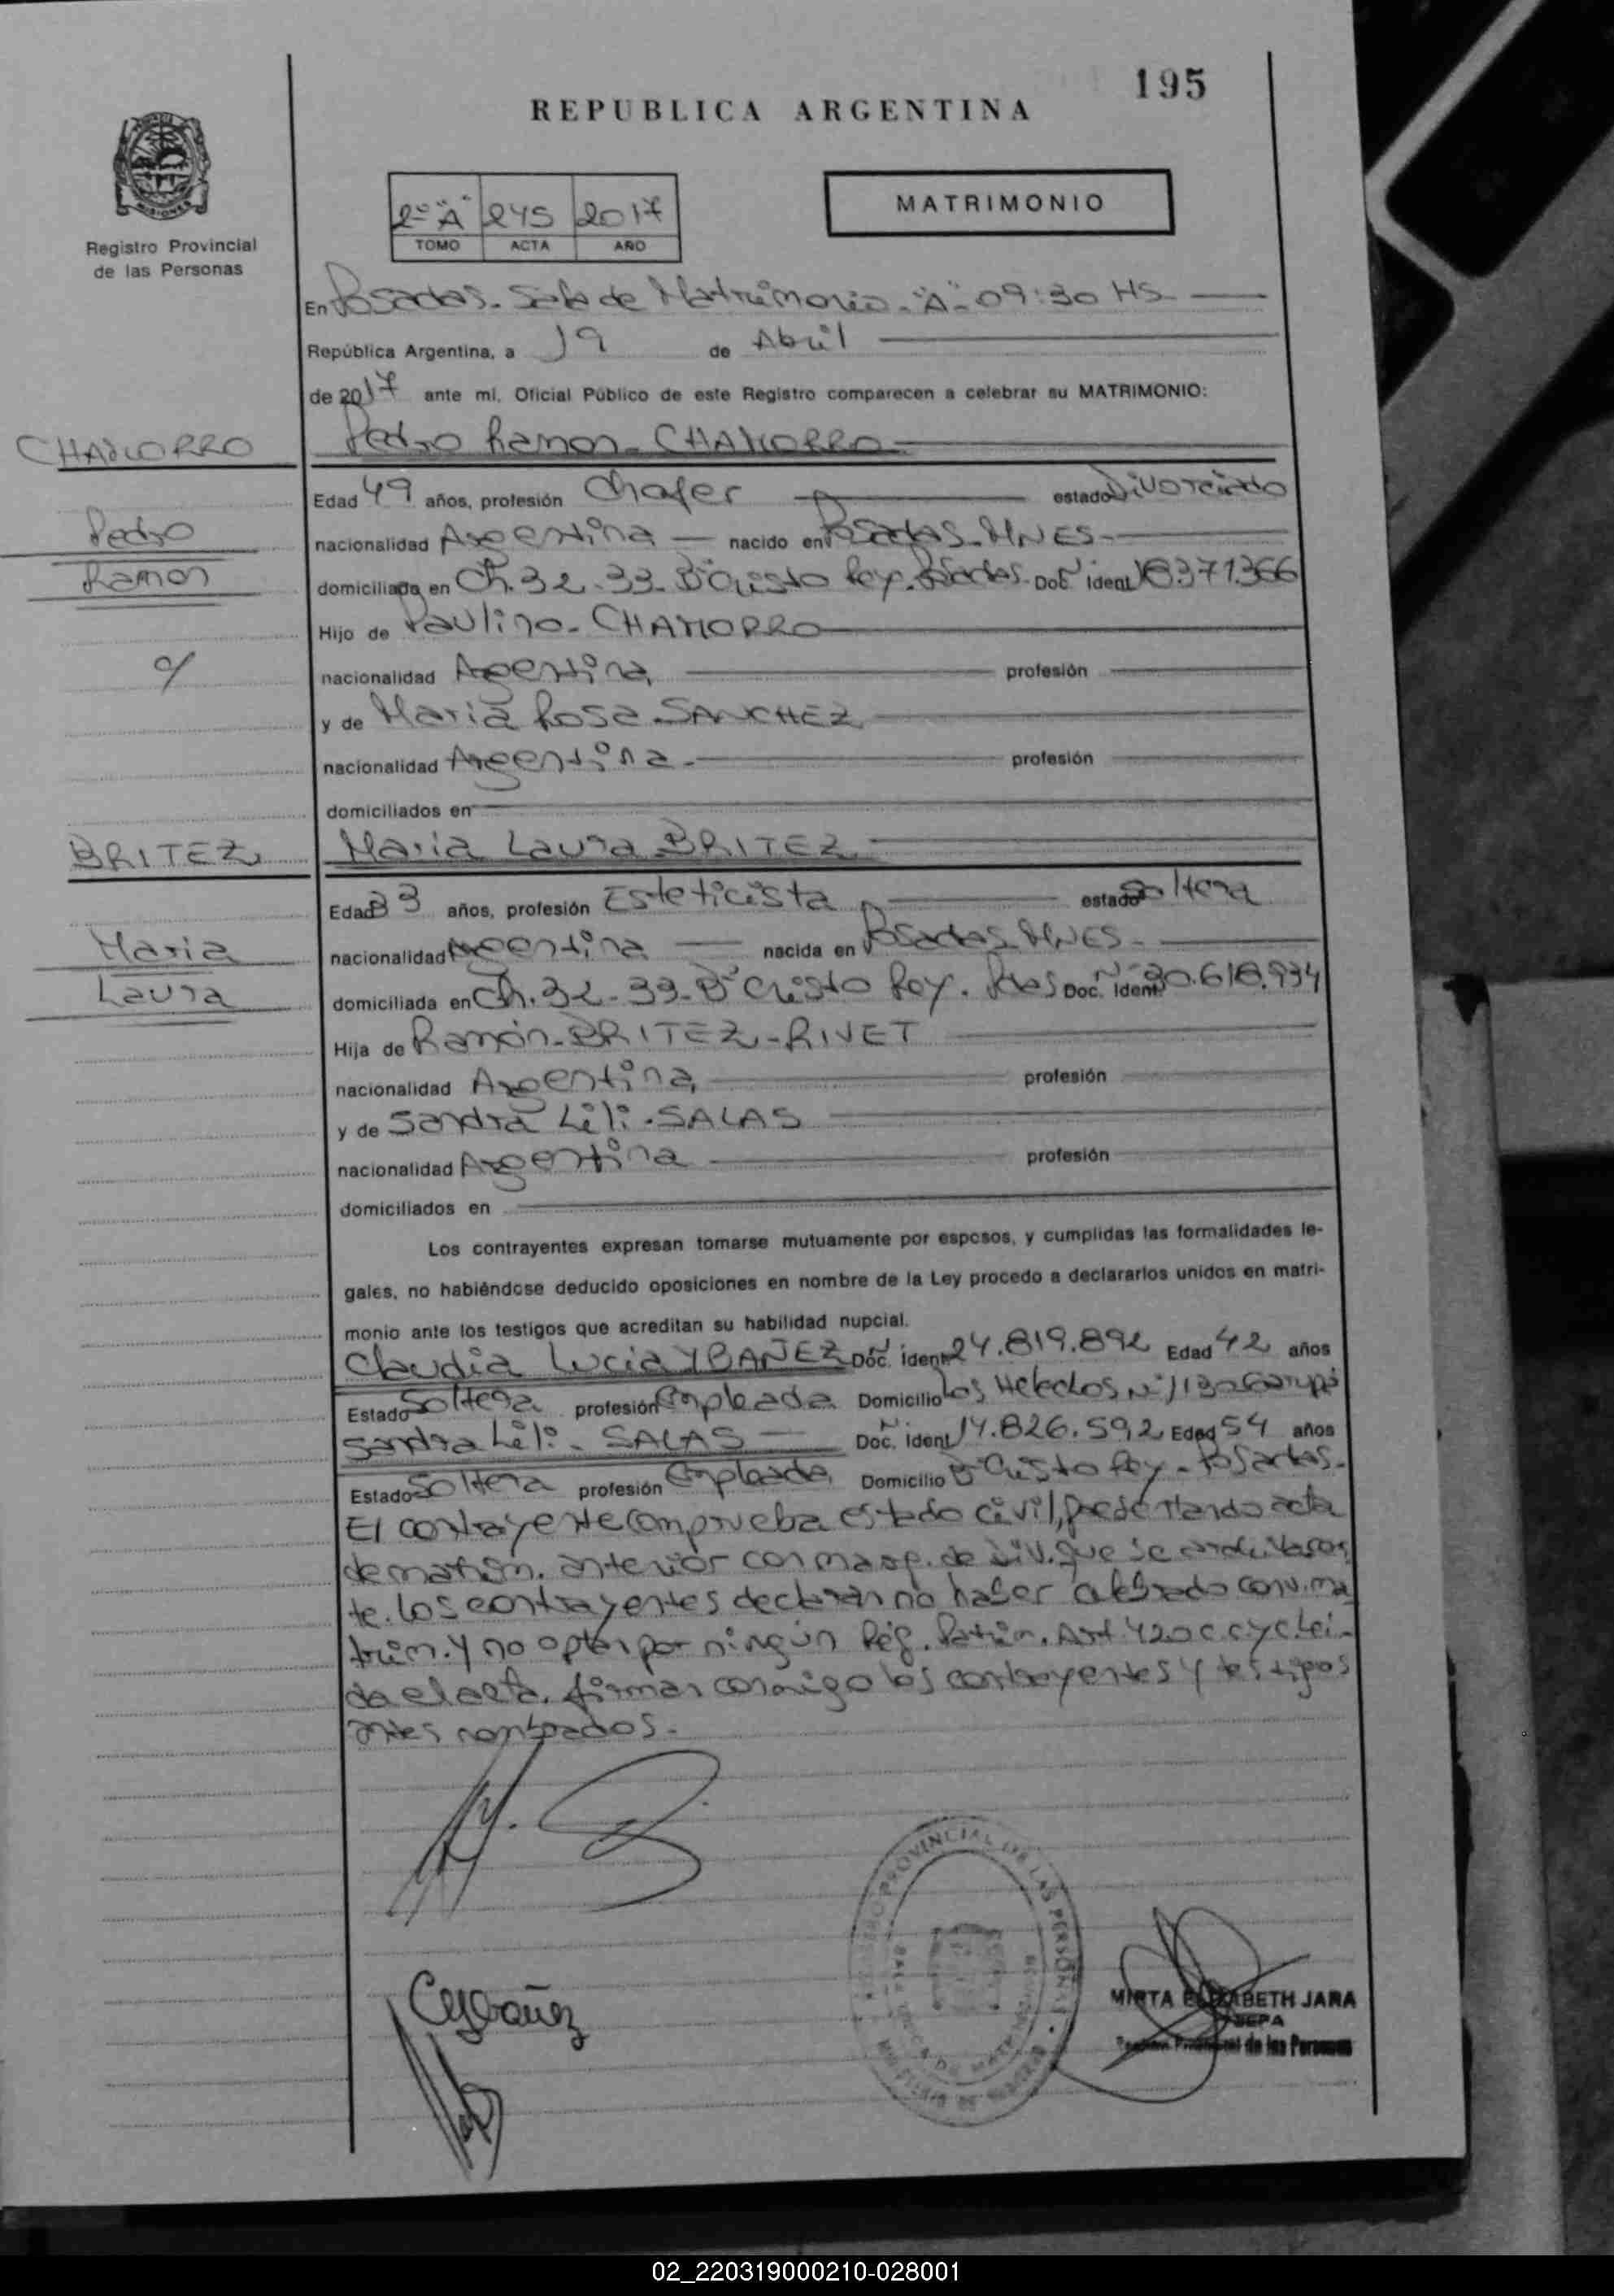 195
REPUBLICA ARGENTINA
MISIONES
Registro Provincial
de las Personas
2º "A" 245 2017
TOMO ACTA AÑO
MATRIMONIO
En Posadas. Sala de Matrimonio. "A". 09:30 HS
República Argentina, a 19 de Abril
de 2017 ante mi, Oficial Público de este Registro comparecen a celebrar su MATRIMONIO:
CHAMORRO
Pedro Ramon. CHAMORRO
Edad 49 años, profesión Chofer estado Divorciado
Pedro
nacionalidad Argentina nacido en Posadas. MNES.
Ramon
domiciliado en Ch. 32-33. Bº Cristo Rey. Posadas. Doc. ident. Nº 18.371.366
Hijo de Paulino. CHAMORRO
c/
nacionalidad Argentina profesión
y de Maria Rosa. SANCHEZ
nacionalidad Argentina. profesión
domiciliados en
BRITEZ
Maria Laura BRITEZ
Edad 33 años, profesión Esteticista estado Soltera
Maria
nacionalidad Argentina nacida en Posadas. MNES.
Laura
domiciliada en Ch. 32-33. Bº Cristo Rey. Pdas Doc. ident. Nº 30.618.934
Hija de Ramón. BRITEZ-RIVET
nacionalidad Argentina profesión
y de Sandra Lili. SALAS
nacionalidad Argentina profesión
domiciliados en
Los contrayentes expresan tomarse mutuamente por esposos, y cumplidas las formalidades le-
gales, no habiéndose deducido oposiciones en nombre de la Ley procedo a declararlos unidos en matri-
monio ante los testigos que acreditan su habilidad nupcial.
Claudia Lucia YBAÑEZ Doc. ident. Nº 24.819.892 Edad 42 años
Estado Soltera profesión Empleada Domicilio Los Helechos Nº 1130 Garupá
Sandra Lili. SALAS Doc. ident. Nº 14.826.592 Edad 54 años
Estado Soltera profesión Empleada Domicilio Bº Cristo Rey. Posadas.
El contrayente comprueba estado civil, presentando acta
de matrim. anterior con marg. de Div. que se archiva
te. Los contrayentes declaran no haber celebrado conv. ma
trim. y no optar por ningún Rég. Patrim. Art. 420 C.C y C. Leí-
da el acta. firman conmigo los contrayentes y testigos
antes nombrados.
CLYbañez
REGISTRO PROVINCIAL DE LAS PERSONAS
MIRTA ELIZABETH JARA
JEFA
Registro Provincial de las Personas
02_220319000210-028001